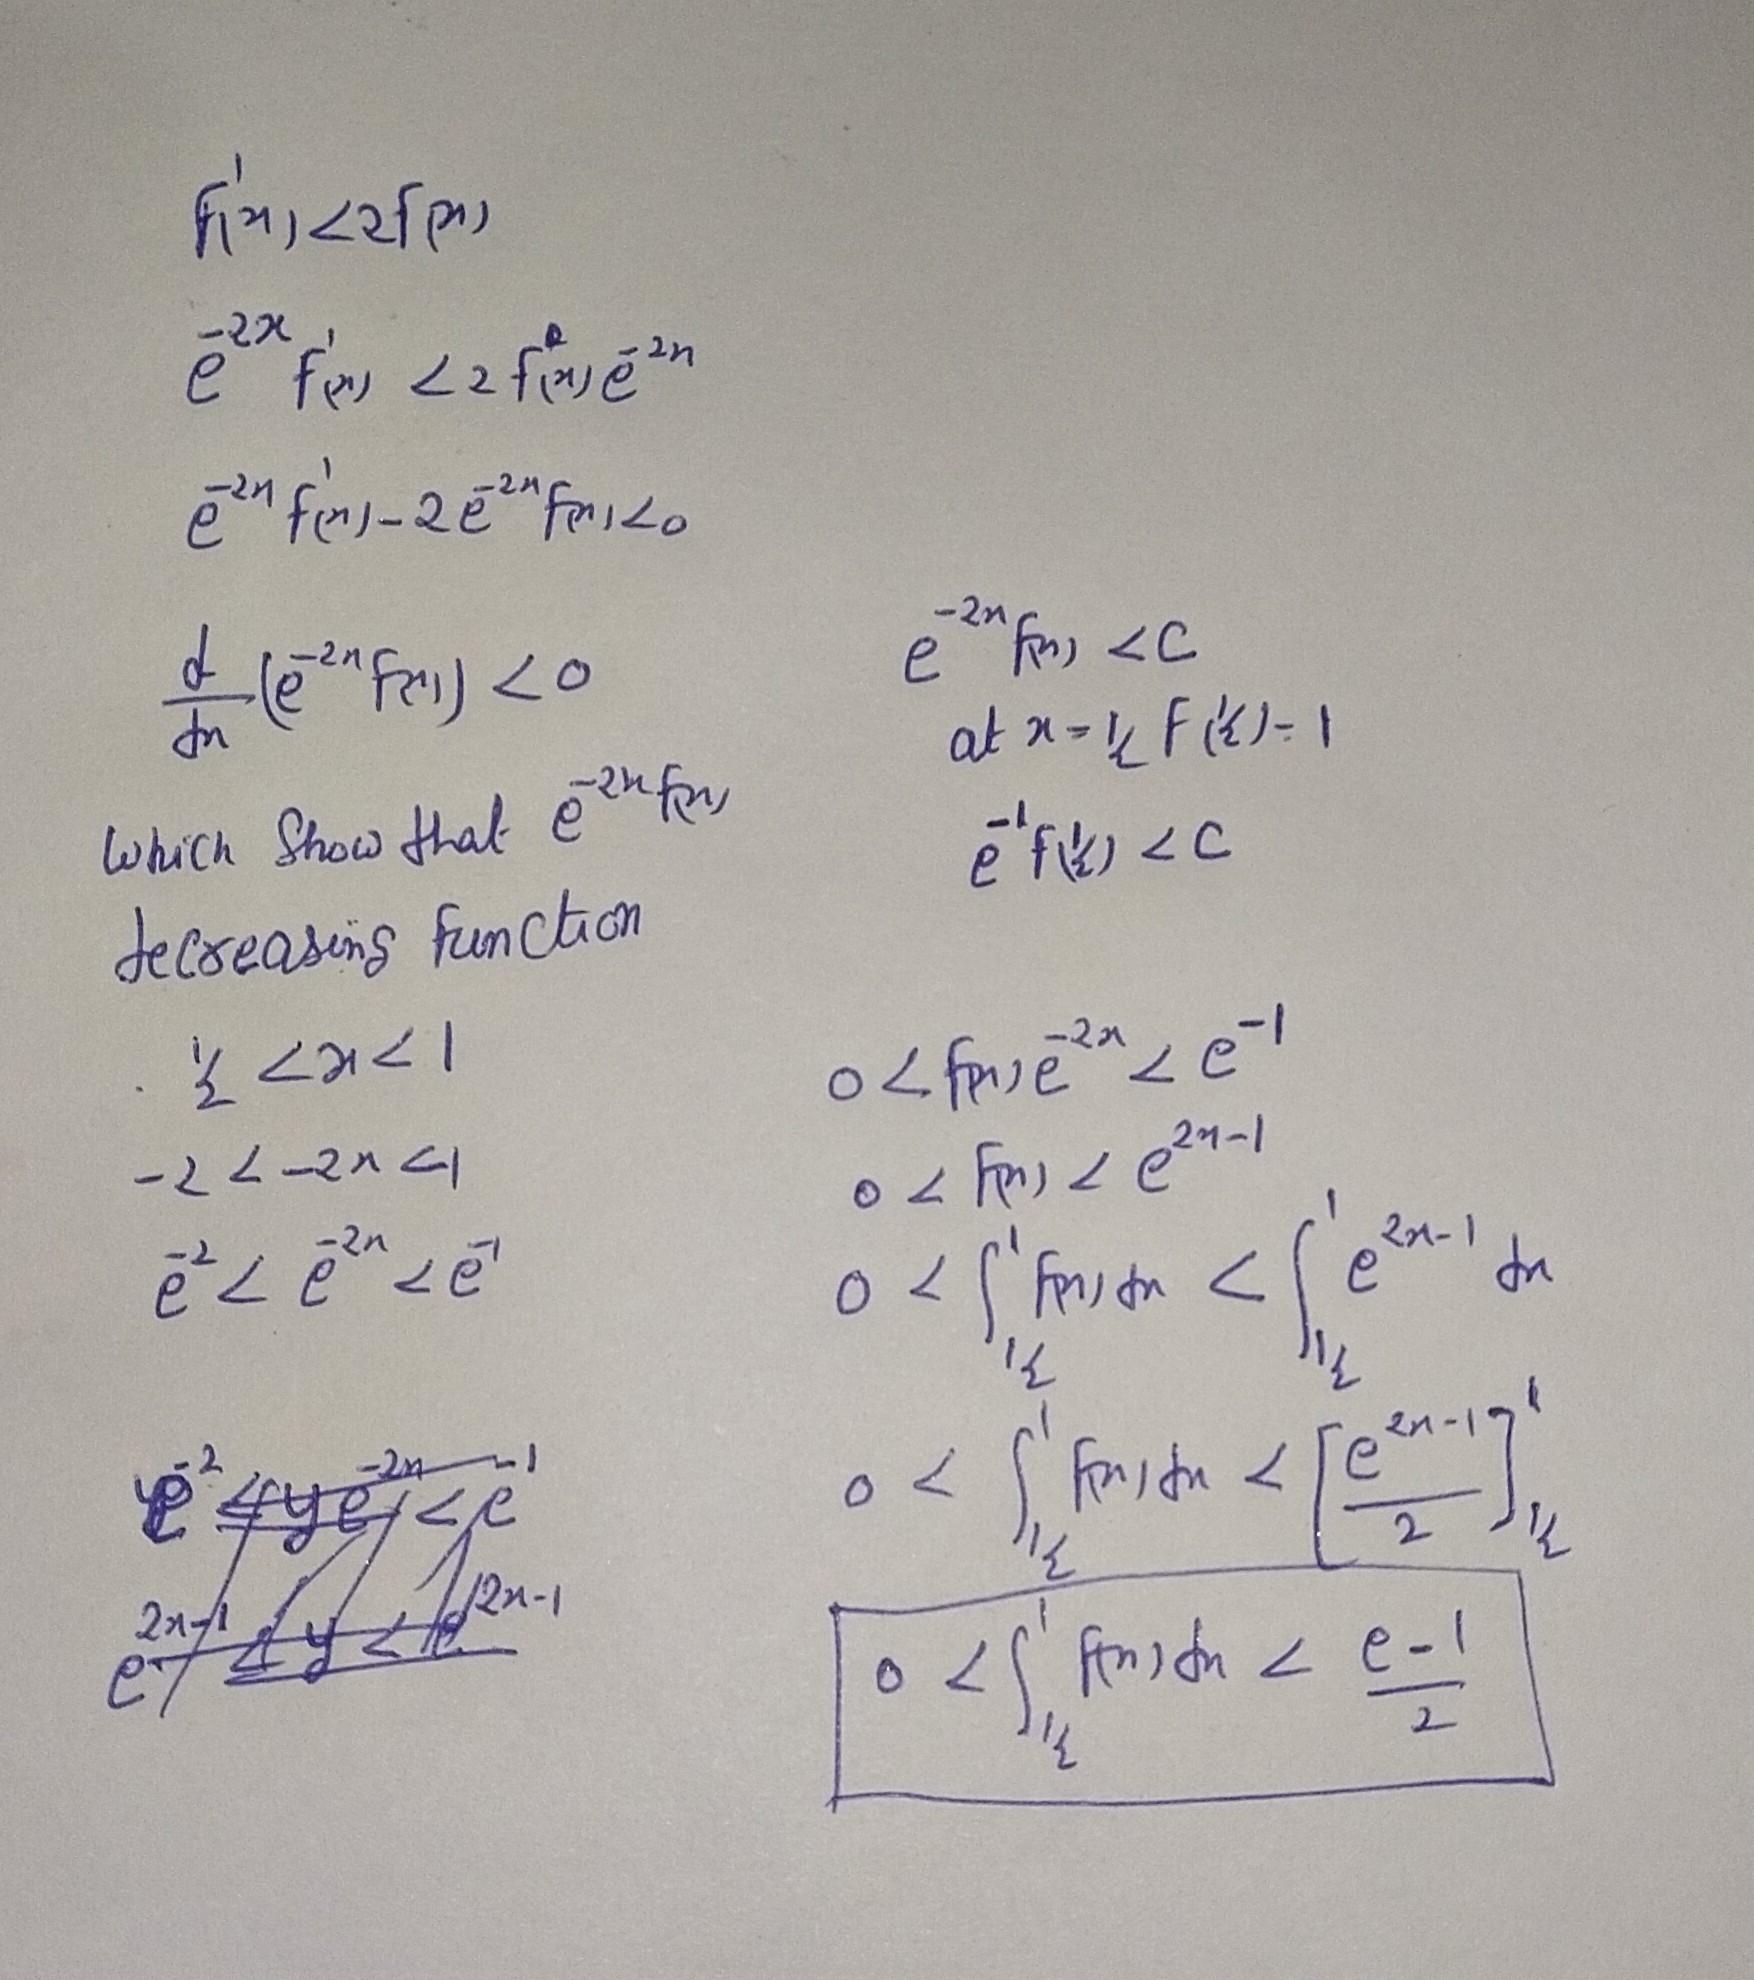 f'(x) < 2f(x)
e^{-2x} f'(x) < 2 f(x) e^{-2x}
e^{-2x} f'(x) - 2 e^{-2x} f(x) < 0
d/dx (e^{-2x} f(x)) < 0
which Show that e^{-2x} f(x)
decreasing function
1/2 < x < 1
-2 < -2x < 1
e^{-2} < e^{-2x} < e^{-1}
e^{-2x} f(x) < C
at x = 1/2 f(1/2) = 1
e^{-1} f(1/2) < C
0 < f(x) e^{-2x} < e^{-1}
0 < f(x) < e^{2x-1}
0 < ∫_{1/2}^{1} f(x) dx < ∫_{1/2}^{1} e^{2x-1} dx
0 < ∫_{1/2}^{1} f(x) dx < [e^{2x-1}/2]_{1/2}^{1}
0 < ∫_{1/2}^{1} f(x) dx < (e-1)/2